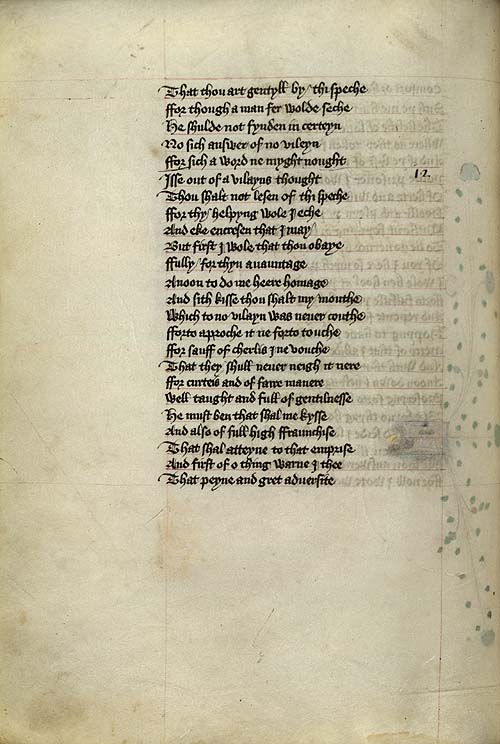 That thou art gentyll by thi speche
ffor though a man fer wolde seche
He shulde not fynden in certeyn
No sich answer of no vileyn
ffor sich a word ne myght nought
Isse out of a vilayns thought
12
Thou shalt not lesen of thi speche
ffor thy helpyng wole I eche
And eke encresen that I may
But first I wole that thou obaye
ffully for thyn avauntage
Anoon to do me heere homage
And sith kisse thou shalt my mouthe
Which to no vilayn was never couthe
fforto aproche it ne forto touche
ffor sauff of cherlis I ne vouche
That they shull never neigh it nere
ffor curteis and of faire manere
Well taught and full of gentilnesse
He must ben that shal me kysse
And also of full high ffraunchise
That shal atteyne to that emprise
And first of o thing warne I thee
That peyne and gret adversite